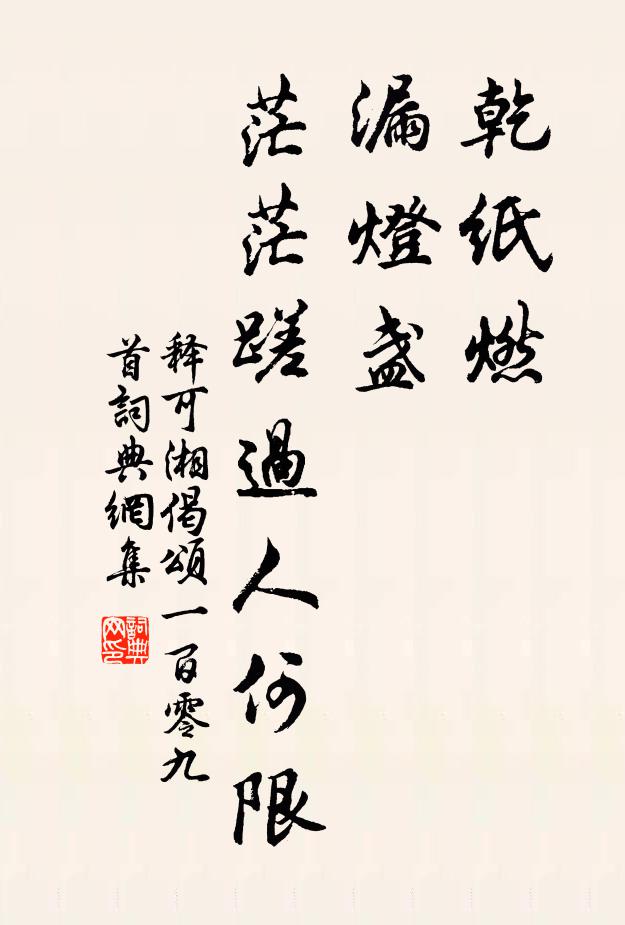 乾紙燃
漏燈盞
茫茫蹉過人何限
释可湘偈頌一百零九
首詞典網集
詞典
网印